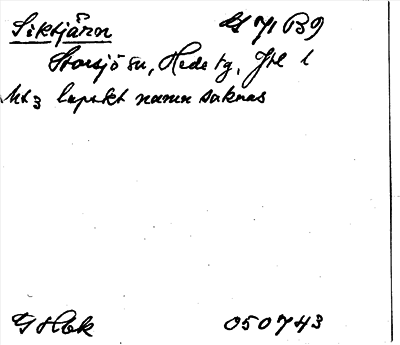 Siktjärn 71 B9
Storsjö sn, Hede tg, Jtl l
Mt 3 lapskt namn saknas
G Hbk 050743